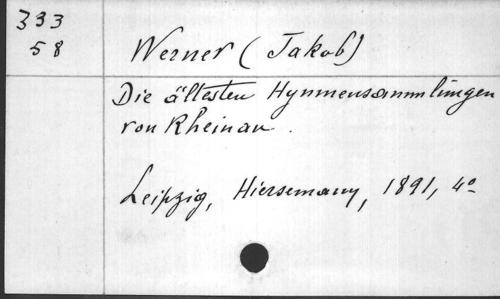 333
58
Werner (Jakob)
Die ältesten Hymnensammlungen
von Rheinau.
Leipzig, Hiersemann, 1891, 4°